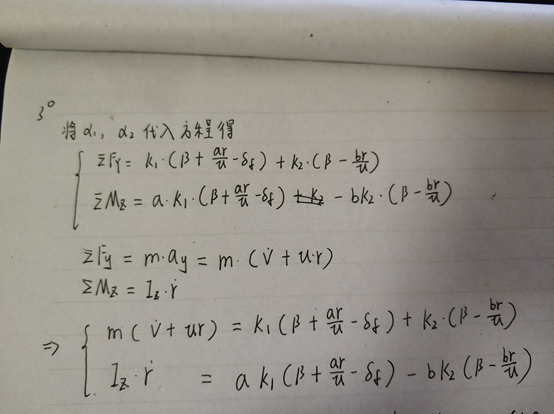 3°
将 α₁, α₂ 代入方程得
ΣF_Y = k₁·(β + ar/u - δ_f) + k₂·(β - br/u)
ΣM_Z = a·k₁·(β + ar/u - δ_f) - bk₂·(β - br/u)
ΣF_y = m·a_y = m·(v̇ + u·r)
ΣM_Z = I_Z·ṙ
⇒ { m(v̇ + ur) = k₁(β + ar/u - δ_f) + k₂·(β - br/u)
I_Z·ṙ = ak₁(β + ar/u - δ_f) - bk₂(β - br/u)